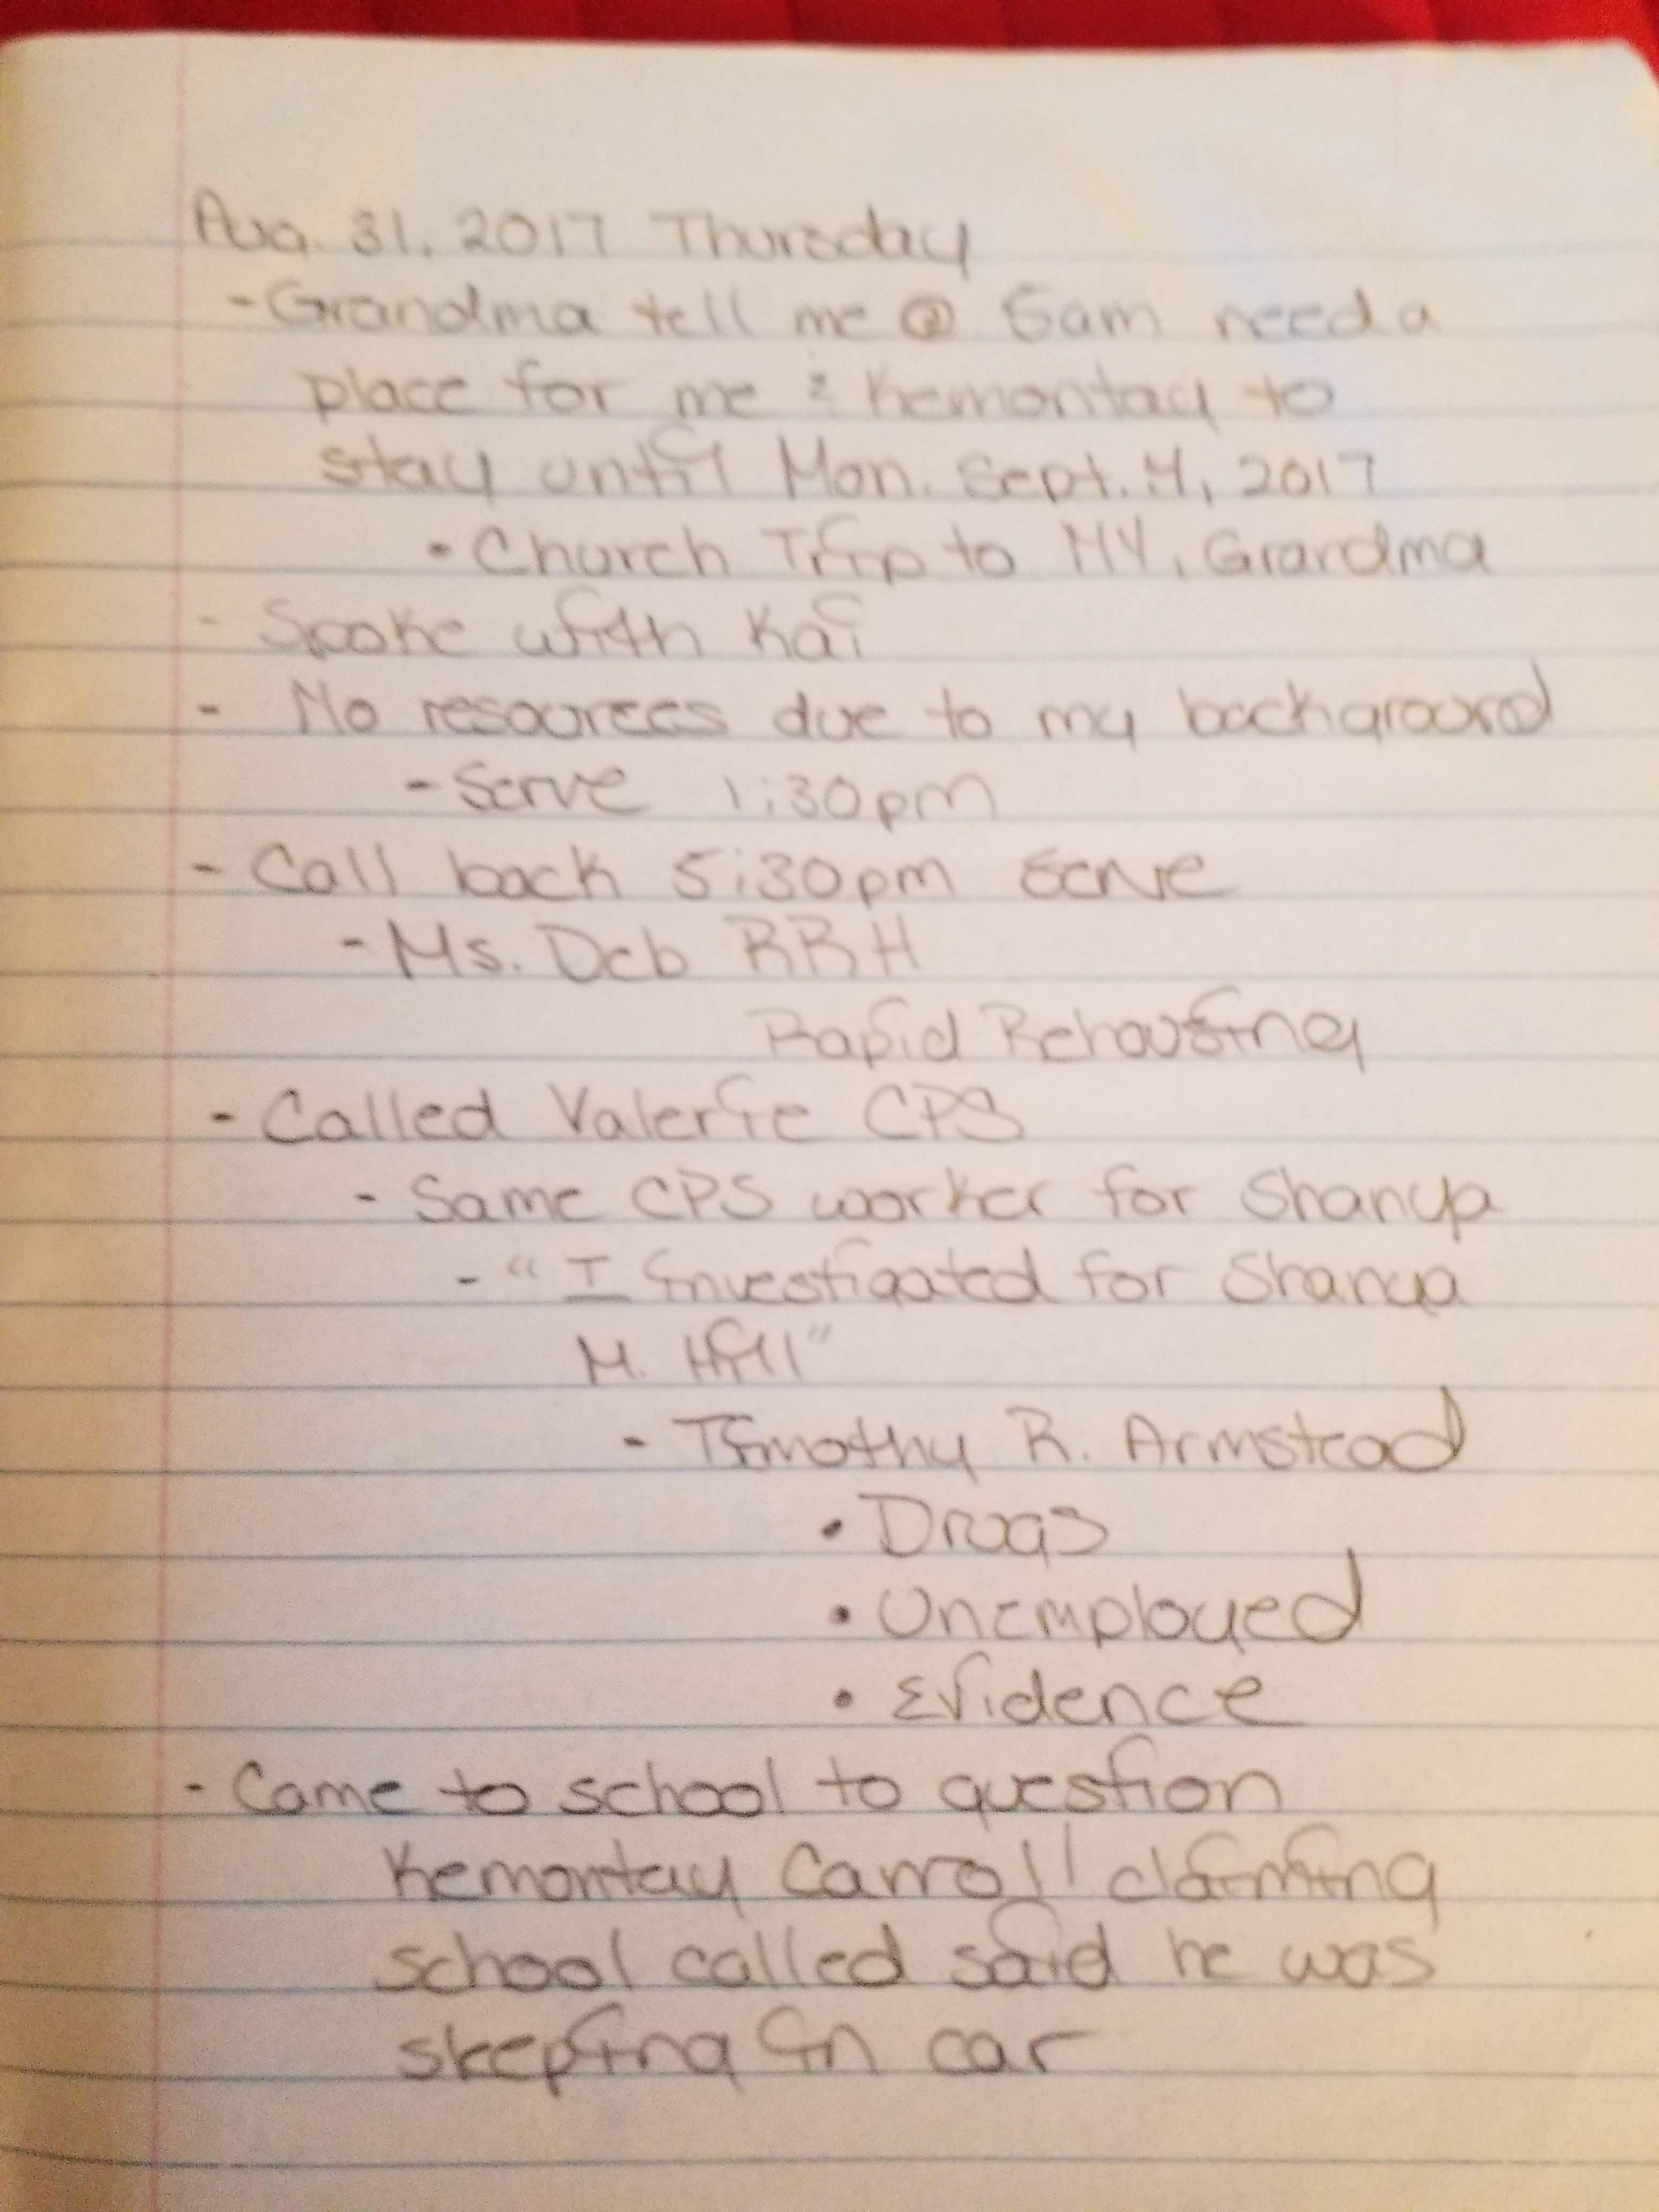 Aug. 31, 2017 Thursday
- Grandma tell me @ 5am need a
place for me & Kemontay to
stay until Mon. Sept. 4, 2017
• Church Trip to NY, Grandma
- Spoke with Kai
- No resources due to my background
- Serve 1:30pm
- Call back 5:30pm Serve
- Ms. Deb RRH
Rapid Rehousing
- Called Valerie CPS
- Same CPS worker for Shanya
- "I investigated for Shanya
M. Hill"
- Timothy R. Armstead
• Drugs
• Unemployed
• Evidence
- Came to school to question
Kemontay Carroll claiming
school called said he was
sleeping in car